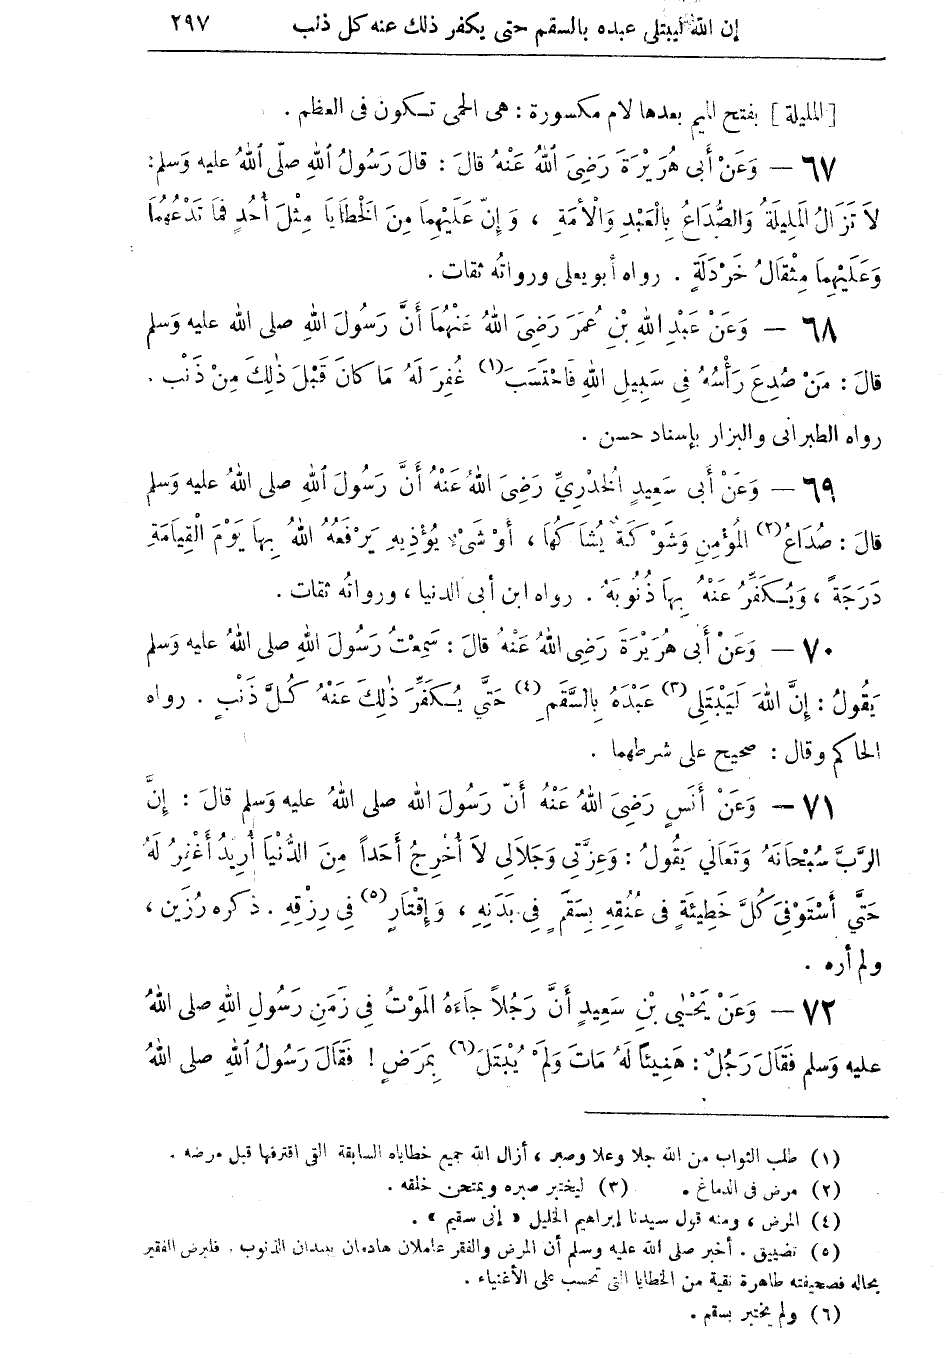 إن الله ليبتلى عبده بالسقم حتى يكفر ذلك عنه كل ذنب ٢٩٧
[المليلة] بفتح الميم بعدها لام مكسورة : هى الحمى تـكون فى العظم .
٦٧ – وَعَنْ أَبى هُرَيْرَةَ رَضِىَ اللهُ عَنْهُ قالَ : قالَ رَسُولُ اللهِ صلّى اللهُ عليه وَسلم :
لاَ تَزَالُ المَلِيلَةُ وَالصُّدَاعُ بِالْعَبْدِ وَالْأَمَةِ ، وَإِنّ عَلَيْهِمَا مِنَ الْخَطَايَا مِثْلَ أُحُدٍ فمَا تَدَعُهُمَا
وَعَلَيْهِمَا مِثْقَالُ خَرْدَلَةٍ . رواه أبو يعلى ورواتُه ثقات .
٦٨ – وَعَنْ عَبْدِ اللهِ بْنِ عُمَرَ رَضِىَ اللهُ عَنْهُمَا أَنَّ رَسُولَ اللهِ صلى الله عليه وَسلم
قالَ : مَنْ صُدِعَ رَأْسُهُ فِى سَبِيلِ اللهِ فَاحْتَسَبَ (١) غُفِرَ لَهُ مَا كانَ قَبْلَ ذٰلِكَ مِنْ ذَنْب .
رواه الطبرانى والبزار بإسناد حسن .
٦٩ – وَعَنْ أَبى سَعِيدٍ الْخُدْرِيِّ رَضِىَ اللهُ عَنْهُ أَنَّ رَسُولَ اللهِ صلى اللهُ عليه وَسلم
قالَ : صُدَاعُ (٢) المُؤْمِنِ وَشَوْكَةٌ يُشَاكُهَا ، أَوْ شَىْءٌ يُؤْذِيهِ يَرْفَعُهُ اللهُ بِهَا يَوْمَ الْقِيَامَةِ
دَرَجَةً ، وَيُـكَفِّرُ عَنْهُ بِهَا ذُنُوبَهُ . رواه ابن أبى الدنيا ، ورواتُه ثقات .
٧٠ – وَعَنْ أَبى هُرَيْرَةَ رَضِىَ اللهُ عَنْهُ قالَ : سَمِعْتُ رَسُولَ اللهِ صلى اللهُ عليه وَسلم
يَقُولُ : إِنَّ اللهَ لَيَبْتَلِى (٣) عَبْدَهُ بِالسَّقَمِ (٤) حَتَّى يُـكَفِّرَ ذٰلِكَ عَنْهُ كُـلَّ ذَنْبٍ . رواه
الحاكم وقال : صحيح على شرطهما .
٧١ – وَعَنْ أَنَسٍ رَضِىَ اللهُ عَنْهُ أَنّ رَسُولَ الله صلى اللهُ عليه وَسلم قالَ : إِنَّ
الرَّبَّ سُبْحَانَهُ وَتَعَالَى يَقُولُ : وَعِزَّتِى وَجَلَالِى لاَ أُخْرِجُ أَحَداً مِنَ الدُّنْيَا أُرِيدُ أَغْفِرُ لَهُ
حَتَّى أَسْتَوْفِىَ كُلَّ خَطِيئَةٍ فى عُنُقِهِ بِسَقَمٍ فِى بَدَنِهِ ، وَإِقْتَارٍ (٥) فِى رِزْقِهِ . ذكره رُزَين ،
ولم أره .
٧٢ – وَعَنْ يَحْيٰى بْنِ سَعِيدٍ أَنَّ رَجُلاً جَاءَهُ المَوْتُ فِى زَمَنِ رَسُولِ اللهِ صلى اللهُ
عليه وَسلم فَقَالَ رَجُلٌ : هَنِيئاً لَهُ مَاتَ وَلَمْ يُبْتَلَ (٦) بِمَرَضٍ ! فَقَالَ رَسُولُ اللهِ صلى اللهُ
(١) طلب الثواب من الله جلا وعلا وصبر ، أزال الله جميع خطاياه السابقة التى اقترفها قبل مرضه .
(٢) مرض فى الدماغ . (٣) ليختبر صبره ويمتحن خلقه .
(٤) المرض ، ومنه قول سيدنا إبراهيم الخليل « إنى سقيم » .
(٥) تضييق . أخبر صلى الله عليه وسلم أن المرض والفقر عاملان هادمان الذنوب . فليرض الفقير
بحاله فصحيفته طاهرة نقية من الخطايا التى تحسب على الأغنياء .
(٦) ولم يختبر بسقم .